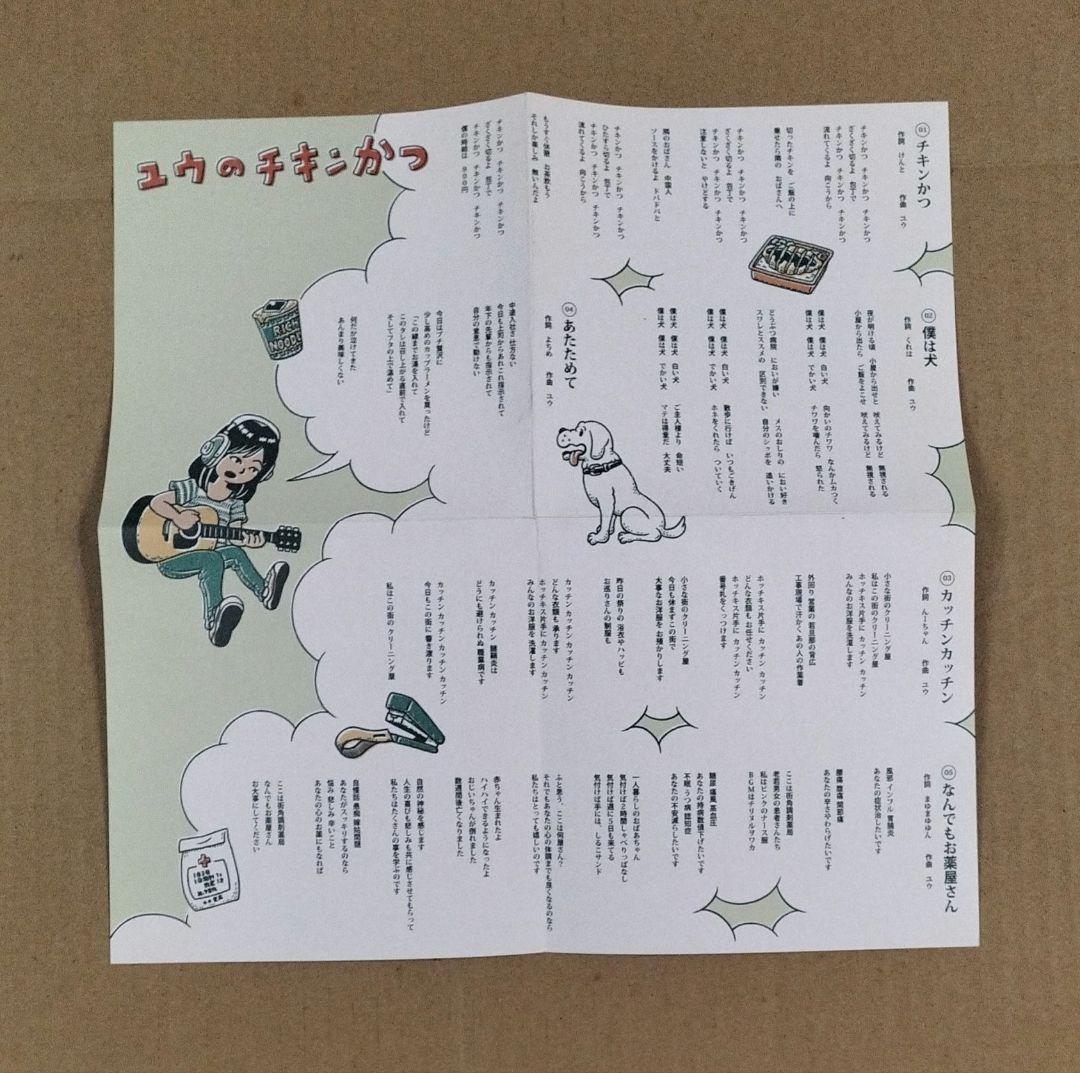 ユウのチキンかつ
01 チキンかつ
作詞 けんと 作曲 ユウ
チキンかつ チキンかつ チキンかつ
ざくざく切るよ 包丁で
チキンかつ チキンかつ チキンかつ
流れてくるよ 向こうから
切ったチキンを ご飯の上に
乗せたら隣の おばさんへ
チキンかつ チキンかつ チキンかつ
ざくざく切るよ 包丁で
チキンかつ チキンかつ チキンかつ
注意しないと やけどする
隣のおばさん 中国人
ソースをかけるよ ドバドバと
チキンかつ チキンかつ チキンかつ
ひたすら切るよ 包丁で
チキンかつ チキンかつ チキンかつ
流れてくるよ 向こうから
もうすぐ休憩 お茶飲もう
それしか楽しみ 無いんだよ
チキンかつ チキンかつ チキンかつ
ざくざく切るよ 包丁で
チキンかつ チキンかつ チキンかつ
僕の時給は 900円
02 僕は犬
作詞 くれは 作曲 ユウ
夜が明ける頃 小屋から出せと 吠えてみるけど 無視される
小屋から出たら ご飯をよこせ 吠えてみるけど 無視される
僕は犬 僕は犬 白い犬
僕は犬 僕は犬 でかい犬
向かいのチワワ なんかムカつく
チワワを噛んだら 怒られた
どうぶつ病院 においが嫌い メスのおしりの におい好き
スワレとススメの 区別できない 自分のシッポを 追いかける
僕は犬 僕は犬 白い犬
僕は犬 僕は犬 でかい犬
散歩に行けば いつもごきげん
ホネをくれたら ついていく
僕は犬 僕は犬 白い犬
僕は犬 僕は犬 でかい犬
ご主人様より 命短い
マテは得意だ 大丈夫
04 あたためて
作詞 よちめ 作曲 ユウ
中途入社さ 仕方ない
今日も上司からあれこれ指示されて
年下の先輩からも指示されて
自分の意思で動けない
今日はプチ贅沢に
少し高めのカップラーメンを買ったけど
「この線までお湯を入れて
このタレは召し上がる直前で入れて
そしてフタの上で温めて」
何だか泣けてきた
あんまり美味しくない
RICH
NOODL
03 カッチンカッチン
作詞 んーちゃん 作曲 ユウ
小さな街のクリーニング屋
私はこの街のクリーニング屋
ホッチキス片手に カッチン カッチン
みんなのお洋服を洗濯します
外回り 営業の 若旦那の背広
工事現場で汗かく あの人の作業着
ホッチキス片手に カッチン カッチン
どんな衣類も お任せください
ホッチキス片手に カッチン カッチン
番号札をくっつけます
小さな街のクリーニング屋
今日も休まずこの街で
大事なお洋服を お預かりします
昨日の祭りの 浴衣やハッピも
お巡りさんの制服も
カッチン カッチン カッチン カッチン
どんな衣類も 承ります
ホッチキス片手に カッチン カッチン
みんなのお洋服を 洗濯します
カッチン カッチン 腱鞘炎は
どうにも避けられぬ 職業病です
カッチン カッチン カッチン カッチン
今日もこの街に 響き渡ります
私はこの街の クリーニング屋
05 なんでもお薬屋さん
作詞 まゆまゆゆん 作曲 ユウ
風邪 インフル 胃腸炎
あなたの症状治したいです
腰痛 腹痛 関節痛
あなたの辛さやわらげたいです
ここは街角調剤薬局
老若男女の患者さんたち
私はピンクのナース服
BGMはチリヌルヲワカ
糖尿 痛風 高血圧
あなたの持病数値下げたいです
不眠 うつ病 認知症
あなたの不安減らしたいです
一人暮らしのおばあちゃん
気付けば2時間しゃべりっぱなし
気付けば週に5日も来てる
気付けば手には、しるこサンド
ふと思う、ここは何屋さん?
それでもあなたの心の体調までも良くなるのなら
私たちはとっても嬉しいのです
赤ちゃん生まれましたよ
ハイハイできるようになったよ
おじいちゃんが倒れました
数週間後亡くなりました
自然の神秘を感じます
人生の喜びも悲しみも共に感じさせてもらって
私たちはたくさんの事を学ぶのです
自慢話 愚痴 嫁姑問題
あなたがスッキリするのなら
悩み 悲しみ 辛いこと
あなたの心のお薬にもなれば
ここは街角調剤薬局
なんでもお薬屋さん
お大事にしてください